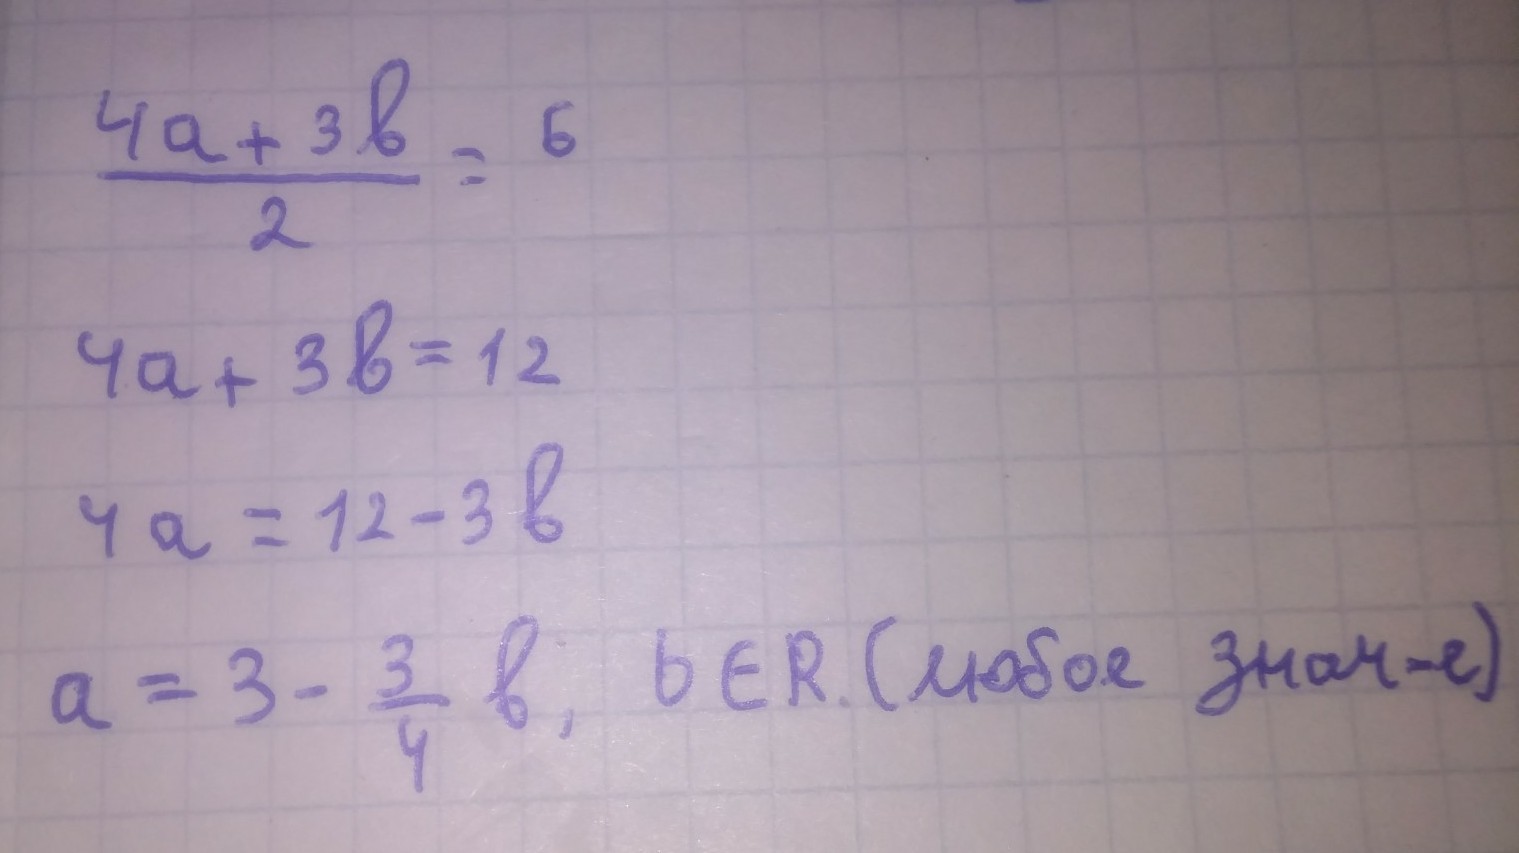 4a + 3b / 2 = 6
4a + 3b = 12
4a = 12 - 3b
a = 3 - 3/4 b, b ∈ R. (любое знач-е)